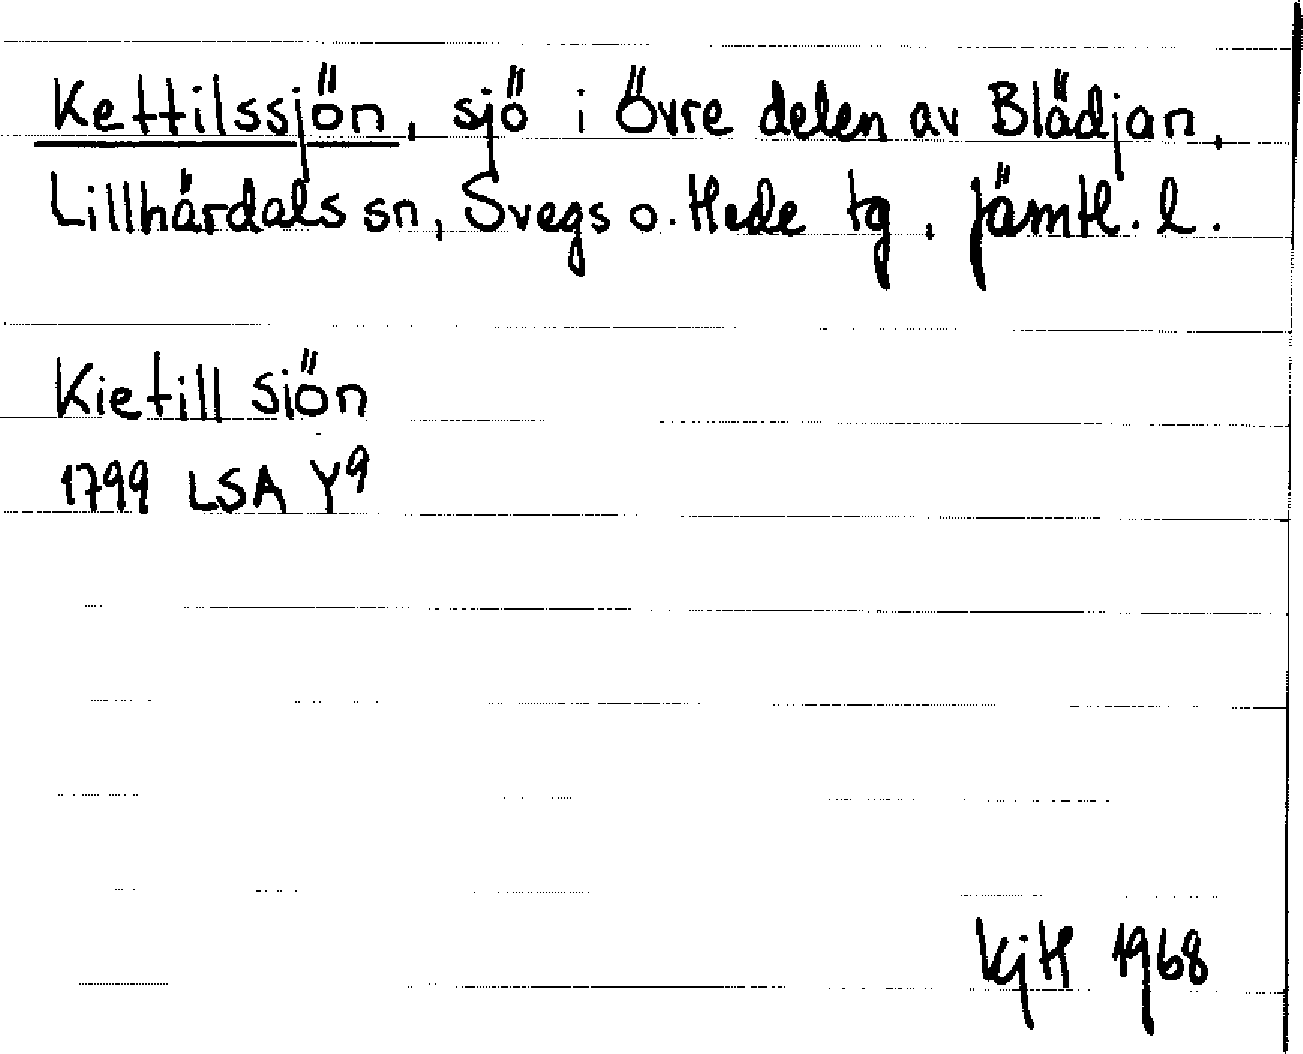 Kettilssjön, sjö i Övre delen av Blädjan,
Lillhärdals sn, Svegs o. Hede tg, Jämtl. l.
Kietill siön
1799 LSA Y9
KjH 1968